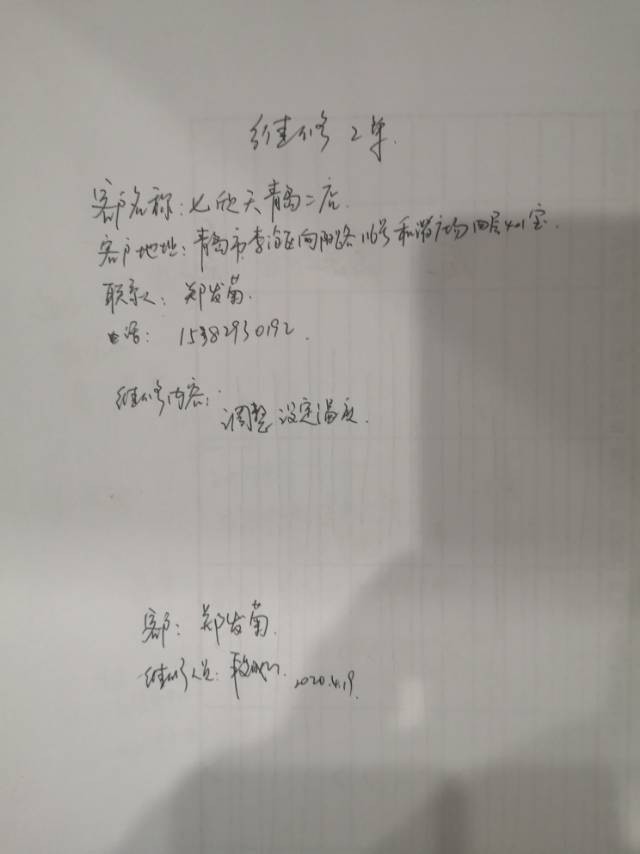 维修工单.
客户名称: 七欣天青岛二店.
客户地址: 青岛市李沧区向阳路116号和谐广场四层401室.
联系人: 郑发菊.
电话: 15382930192.
维修内容:
调整设定温度.
客户: 郑发菊.
维修人员: 2020.4.19.